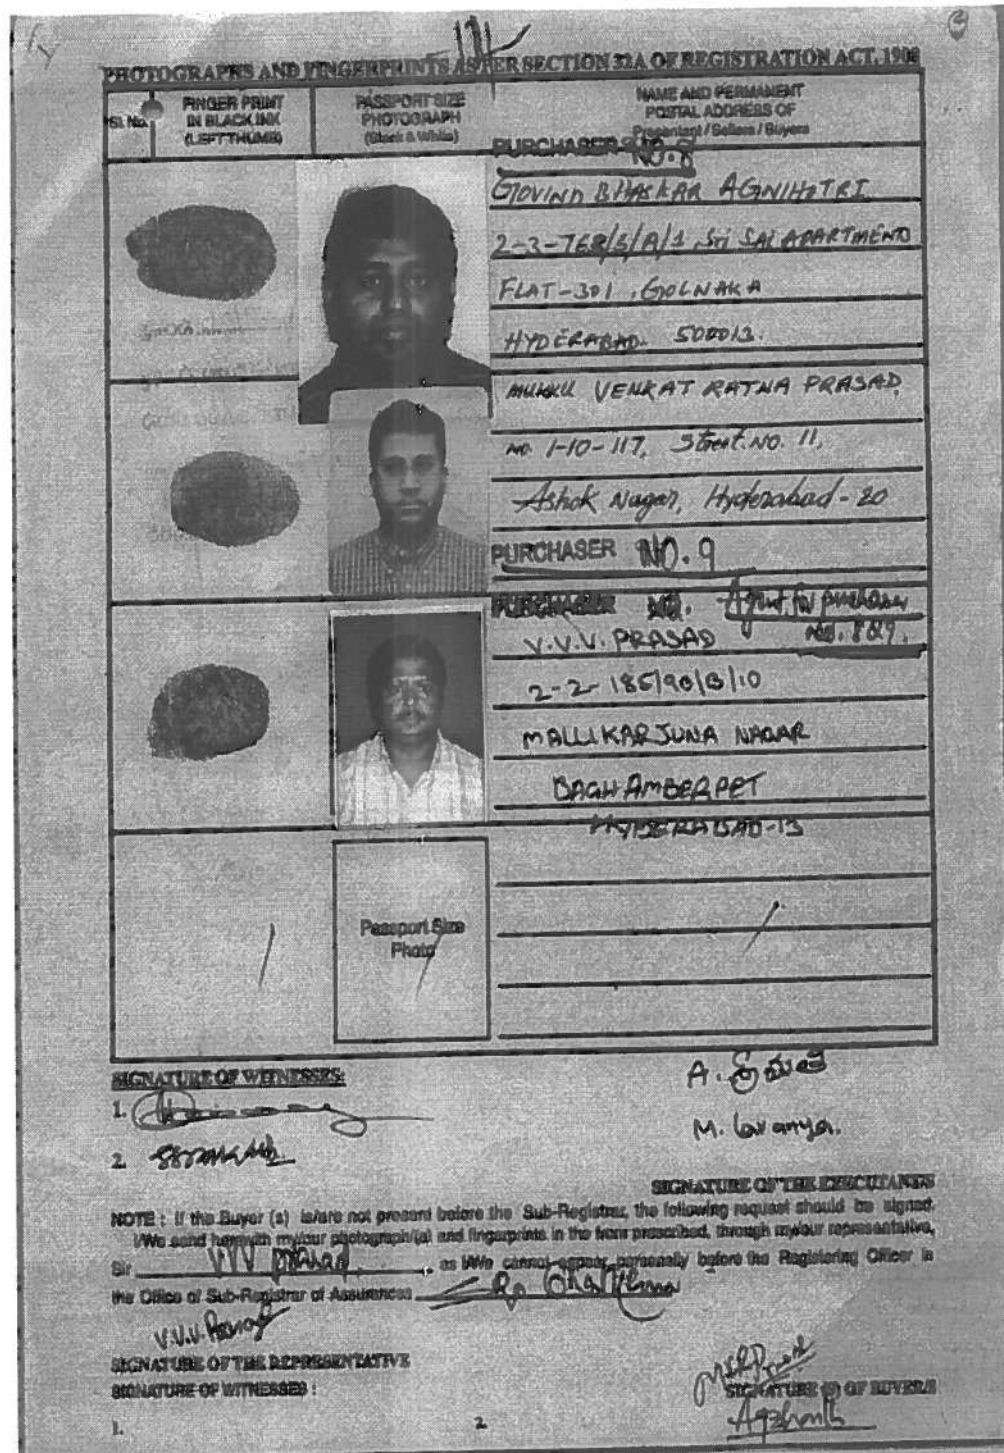 PHOTOGRAPHS AND FINGERPRINTS AS PER SECTION 32A OF REGISTRATION ACT, 1908
Sl. No.
FINGER PRINT
IN BLACK INK
(LEFT THUMB)
PASSPORT SIZE
PHOTOGRAPH
(Black & White)
NAME AND PERMANENT
POSTAL ADDRESS OF
Presentant / Sellers / Buyers
PURCHASER NO. 8
GOVIND BHASKAR AGNIHOTRI
2-3-768/3/A/1, Sri SAI APARTMENT
FLAT-301, GOLNAKA
HYDERABAD. 500013.
MUKKU VENKAT RATNA PRASAD,
no. 1-10-117, Street. NO. 11,
Ashok Nagar, Hyderabad-20
PURCHASER NO. 9
PURCHASER NO. Agent for purchaser
No. 8&9.
V.V.V. PRASAD
2-2-185/90/B/10
MALLIKARJUNA NAGAR
BAGH AMBERPET
HYDERABAD-13
Passport Size
Photo
SIGNATURE OF WITNESSES:
1.
2
A.
M. Lavanya.
SIGNATURE OF THE EXECUTANTS
NOTE : If the Buyer (s) is/are not present before the Sub-Registrar, the following request should be signed.
I/We send herewith my/our photograph(s) and fingerprints in the from prescribed, through my/our representative,
Sir VVV prasad, as I/We cannot appear personally before the Registering Officer in
the Office of Sub-Registrar of Assurances
V.V.V. Prasad
SIGNATURE OF THE REPRESENTATIVE
SIGNATURE OF WITNESSES :
SIGNATURE (S) OF BUYER/S
1.
2